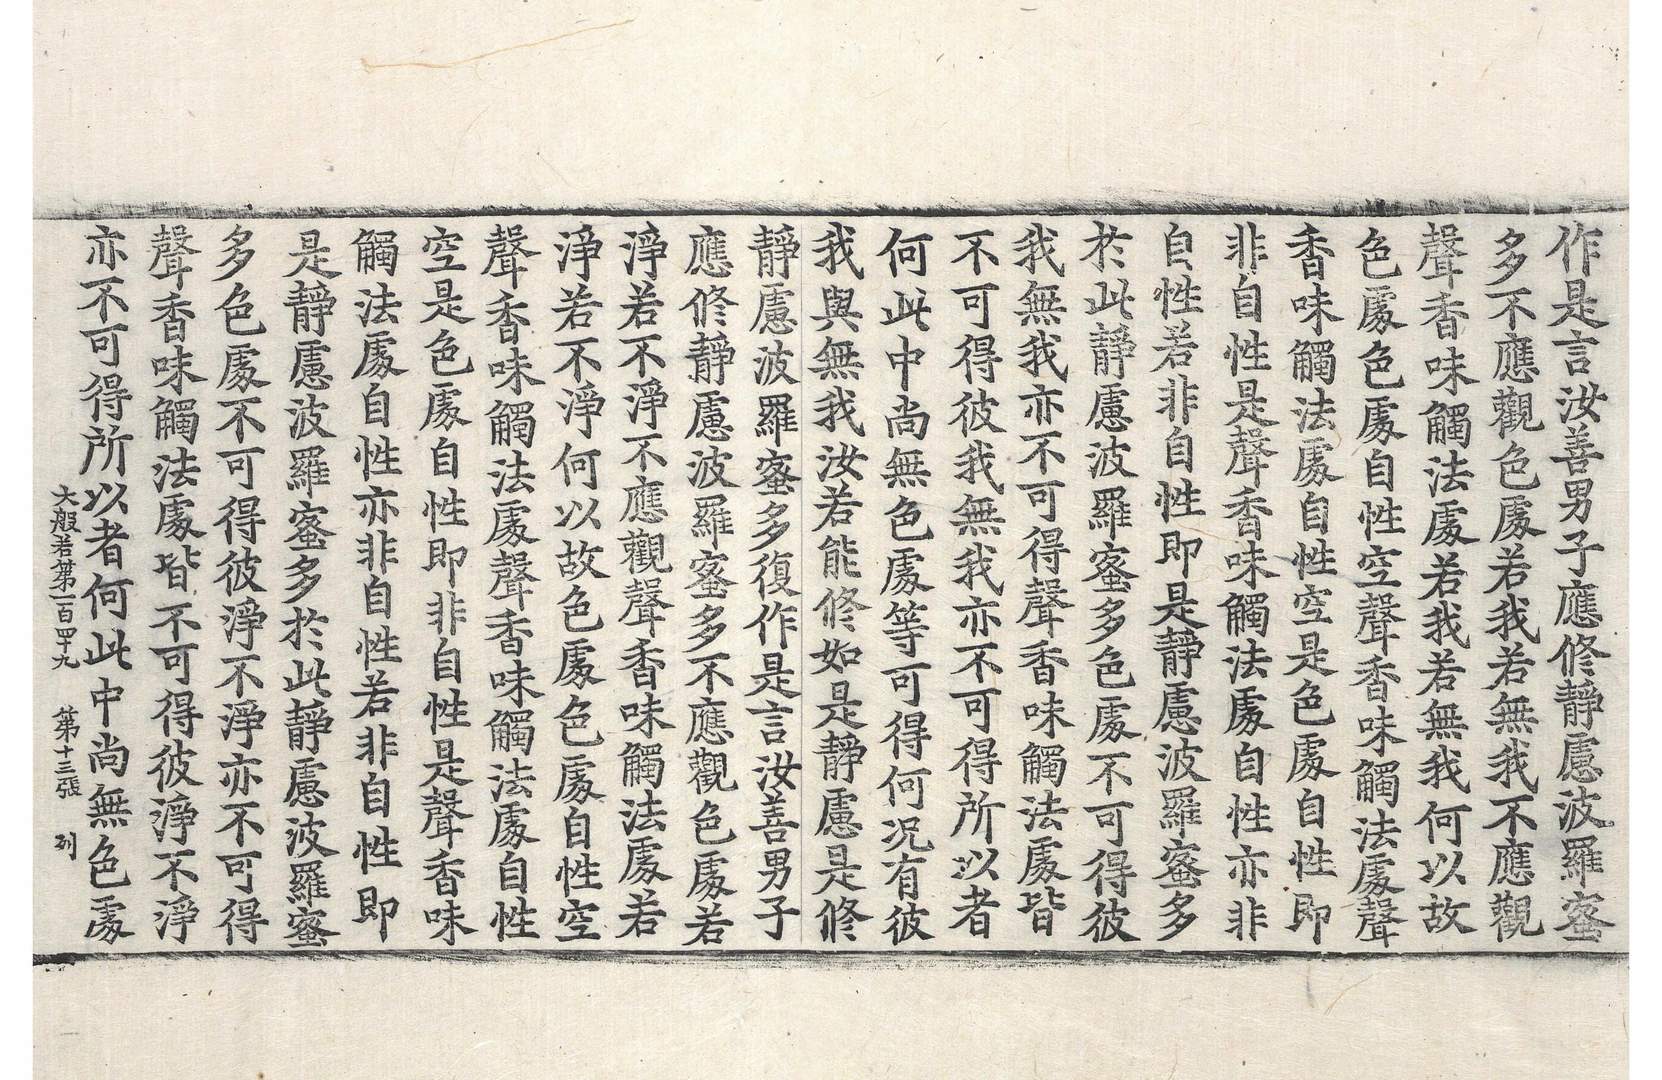 作是言汝善男子應修靜慮波羅蜜
多不應觀色處若我若無我不應觀
聲香味觸法處若我若無我何以故
色處色處自性空聲香味觸法處聲
香味觸法處自性空是色處自性即
非自性是聲香味觸法處自性亦非
自性若非自性即是靜慮波羅蜜多
於此靜慮波羅蜜多色處不可得彼
我無我亦不可得聲香味觸法處皆
不可得彼我無我亦不可得所以者
何此中尚無色處等可得何況有彼
我與無我汝若能修如是靜慮是修
靜慮波羅蜜多復作是言汝善男子
應修靜慮波羅蜜多不應觀色處若
淨若不淨不應觀聲香味觸法處若
淨若不淨何以故色處色處自性空
聲香味觸法處聲香味觸法處自性
空是色處自性即非自性是聲香味
觸法處自性亦非自性若非自性即
是靜慮波羅蜜多於此靜慮波羅蜜
多色處不可得彼淨不淨亦不可得
聲香味觸法處皆不可得彼淨不淨
亦不可得所以者何此中尚無色處
大般若第一百四十九 第十三張 列